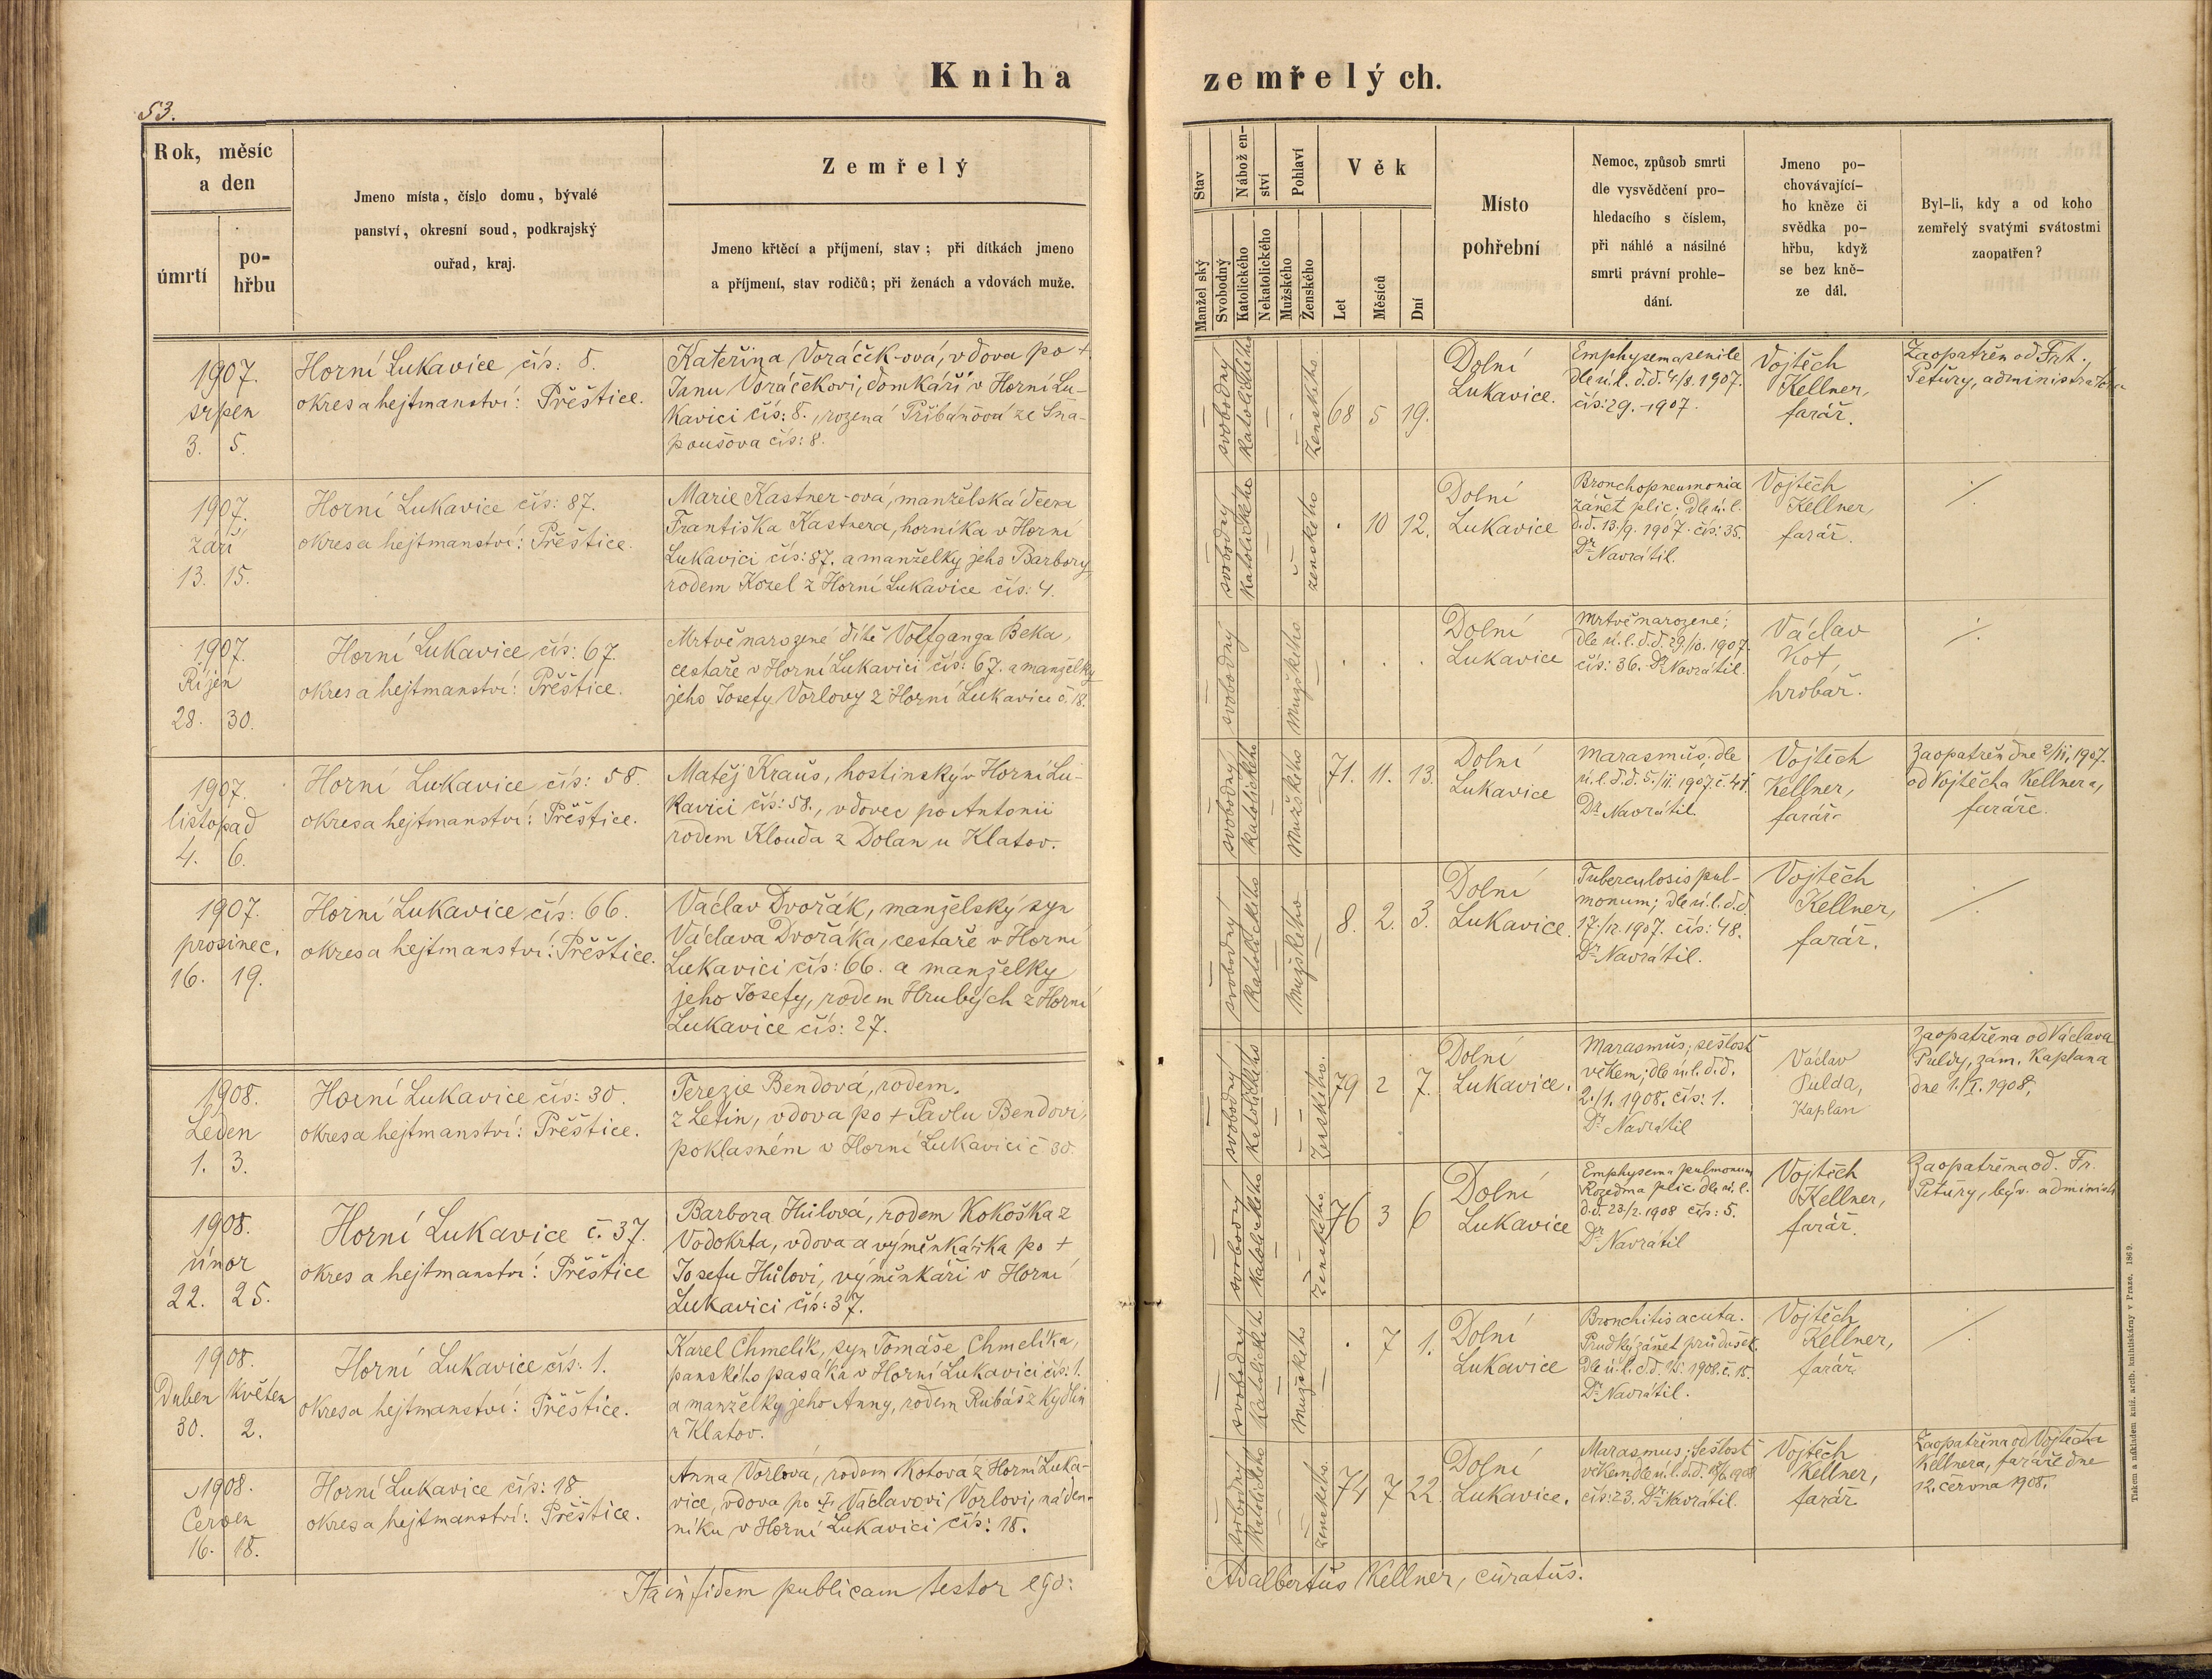 Kniha zemřelých.
53.
Rok, měsíc
a den
úmrtí
po-
hřbu
Jmeno místa, číslo domu, bývalé
panství, okresní soud, podkrajský
ouřad, kraj.
Zemřelý
Jmeno křtěcí a příjmení, stav; při dítkách jmeno
a příjmení, stav rodičů; při ženách a vdovách muže.
Stav
Manželský
Svobodný
Nábožen-
ství
Katolického
Nekatolického
Pohlaví
Mužského
Ženského
Věk
Let
Měsíců
Dní
Místo
pohřební
Nemoc, způsob smrti
dle vysvědčení pro-
hledacího s číslem,
při náhlé a násilné
smrti právní prohle-
dání.
Jmeno po-
chovávající-
ho kněze či
svědka po-
hřbu, když
se bez kně-
ze dál.
Byl-li, kdy a od koho
zemřelý svatými svátostmi
zaopatřen?
1907.
srpen
3. 5.
Horní Lukavice čís: 8.
okres a hejtmanství: Přeštice.
Kateřina Voráček-ová, vdova po +
Janu Voráčekovi, domkáři v Horní Lu-
kavici čís: 8., rozená Přibáňová ze Sna-
poušova čís: 8.
svobodný
katolického
ženského.
68 5 19.
Dolní
Lukavice.
Emphysema senile
dle ú. l. d. d. 4/8. 1907.
čís: 29. - 1907.
Vojtěch
Kellner,
farář.
Zaopatřen od Frt.
Petury, administrátora
1907.
září
13. 15.
Horní Lukavice čís: 87.
okres a hejtmanství: Přeštice.
Marie Kastner-ová, manželská dcera
Františka Kastnera, horníka v Horní
Lukavici čís: 87. a manželky jeho Barbory,
rodem Kozel z Horní Lukavice čís: 4.
svobodný
katolického
ženského
. 10 12.
Dolní
Lukavice
Bronchopneumonia
zánět plic; dle ú. l.
d. d. 13/9. 1907. čís: 35.
Dr Navrátil.
Vojtěch
Kellner,
farář.
1907.
Říjen
28. 30.
Horní Lukavice čís: 67.
okres a hejtmanství: Přeštice.
Mrtvě narozené dítě Volfganga Beka,
cestaře v Horní Lukavici čís: 67. a manželky
jeho Josefy Vorlovy z Horní Lukavice č. 18.
svobodný
mužského
. . .
Dolní
Lukavice
Mrtvě narozené;
dle ú. l. d. d. 29/10. 1907.
čís: 36. Dr Navrátil.
Václav
Kot,
hrobař.
1907.
listopad
4. 6.
Horní Lukavice čís: 58.
okres a hejtmanství: Přeštice.
Matěj Kraus, hostinský v Horní Lu-
kavici čís: 58., vdovec po Antonii
rodem Klouda z Dolan u Klatov.
svobodný
katolického
mužského
71. 11. 13.
Dolní
Lukavice
Marasmus; dle
ú. l. d. d. 5/11. 1907. č. 41.
Dr Navrátil.
Vojtěch
Kellner,
farář.
Zaopatřen dne 2/11. 1907.
od Vojtěcha Kellnera,
faráře.
1907.
prosinec.
16. 19.
Horní Lukavice čís: 66.
okres a hejtmanství: Přeštice.
Václav Dvořák, manželský syn
Václava Dvořáka, cestaře v Horní
Lukavici čís: 66. a manželky
jeho Josefy, rodem Hrubých z Horní
Lukavice čís: 27.
svobodný
katolického
mužského
8. 2. 3.
Dolní
Lukavice.
Tuberculosis pul-
monum; dle ú. l. d. d.
17./12. 1907. čís: 48.
Dr Navrátil.
Vojtěch
Kellner,
farář.
1908.
Leden
1. 3.
Horní Lukavice čís: 30.
okres a hejtmanství: Přeštice.
Terezie Bendová, rodem.
z Letin, vdova po + Pavlu Bendovi,
poklasném v Horní Lukavici č 30.
svobodný
katolického
ženského.
79 2 7.
Dolní
Lukavice.
Marasmus; sešlost
věkem; dle ú. l. d. d.
2./1. 1908. čís: 1.
Dr Navrátil
Václav
Pulda,
kaplan
Zaopatřena od Václava
Puldy, zám. kaplana
dne 1./I. 1908.
1908.
únor
22. 25.
Horní Lukavice č. 37.
okres a hejtmanství: Přeštice
Barbora Hůlová, rodem Kokoška z
Vodokrta, vdova a výměnkářka po +
Josefu Hůlovi, výměnkáři v Horní
Lukavici čís: 37.
svobodný
katolického
ženského
76 3 6
Dolní
Lukavice
Emphysema pulmonum
Rozedma plic; dle ú. l.
d. d. 23/2. 1908 čís: 5.
Dr Navrátil
Vojtěch
Kellner,
farář.
Zaopatřena od. Fr.
Petury, býv. administr
1908.
Duben Květen
30. 2.
Horní Lukavice čís: 1.
okres a hejtmanství: Přeštice.
Karel Chmelík, syn Tomáše Chmelíka,
panského pasáka v Horní Lukavici čís: 1.
a manželky jeho Anny, rodem Rubáš z Kydlin
u Klatov.
svobodný
katolického
mužského
. 7 1.
Dolní
Lukavice
Bronchitis acuta.
Prudký zánět průdušek.
Dle ú. l. d. d. 1/5. 1908. č. 15.
Dr Navrátil.
Vojtěch
Kellner,
farář
1908.
Červen
16. 18.
Horní Lukavice čís: 18.
okres a hejtmanství: Přeštice.
Anna Vorlová, rodem Kotová z Horní Luka-
vice, vdova po + Václavovi Vorlovi, náden-
níku v Horní Lukavici čís: 18.
svobodný
katolického
ženského.
74 7 22.
Dolní
Lukavice.
Marasmus; Sešlost
věkem, dle ú. l. d. d. 1908
čís: 23. Dr Navrátil.
Vojtěch
Kellner,
farář
Zaopatřena od Vojtěcha
Kellnera, faráře dne
12. června 1908.
Ita in fidem publicam testor ego: Adalbertus Kellner, curatus.
Tiskem a nákladem kníž. arcib. knihtiskárny v Praze. 1869.